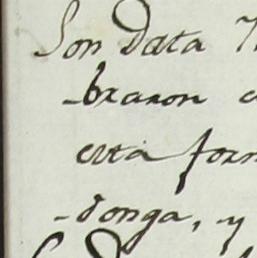 Son Data
-braron
esta form
-donga, y